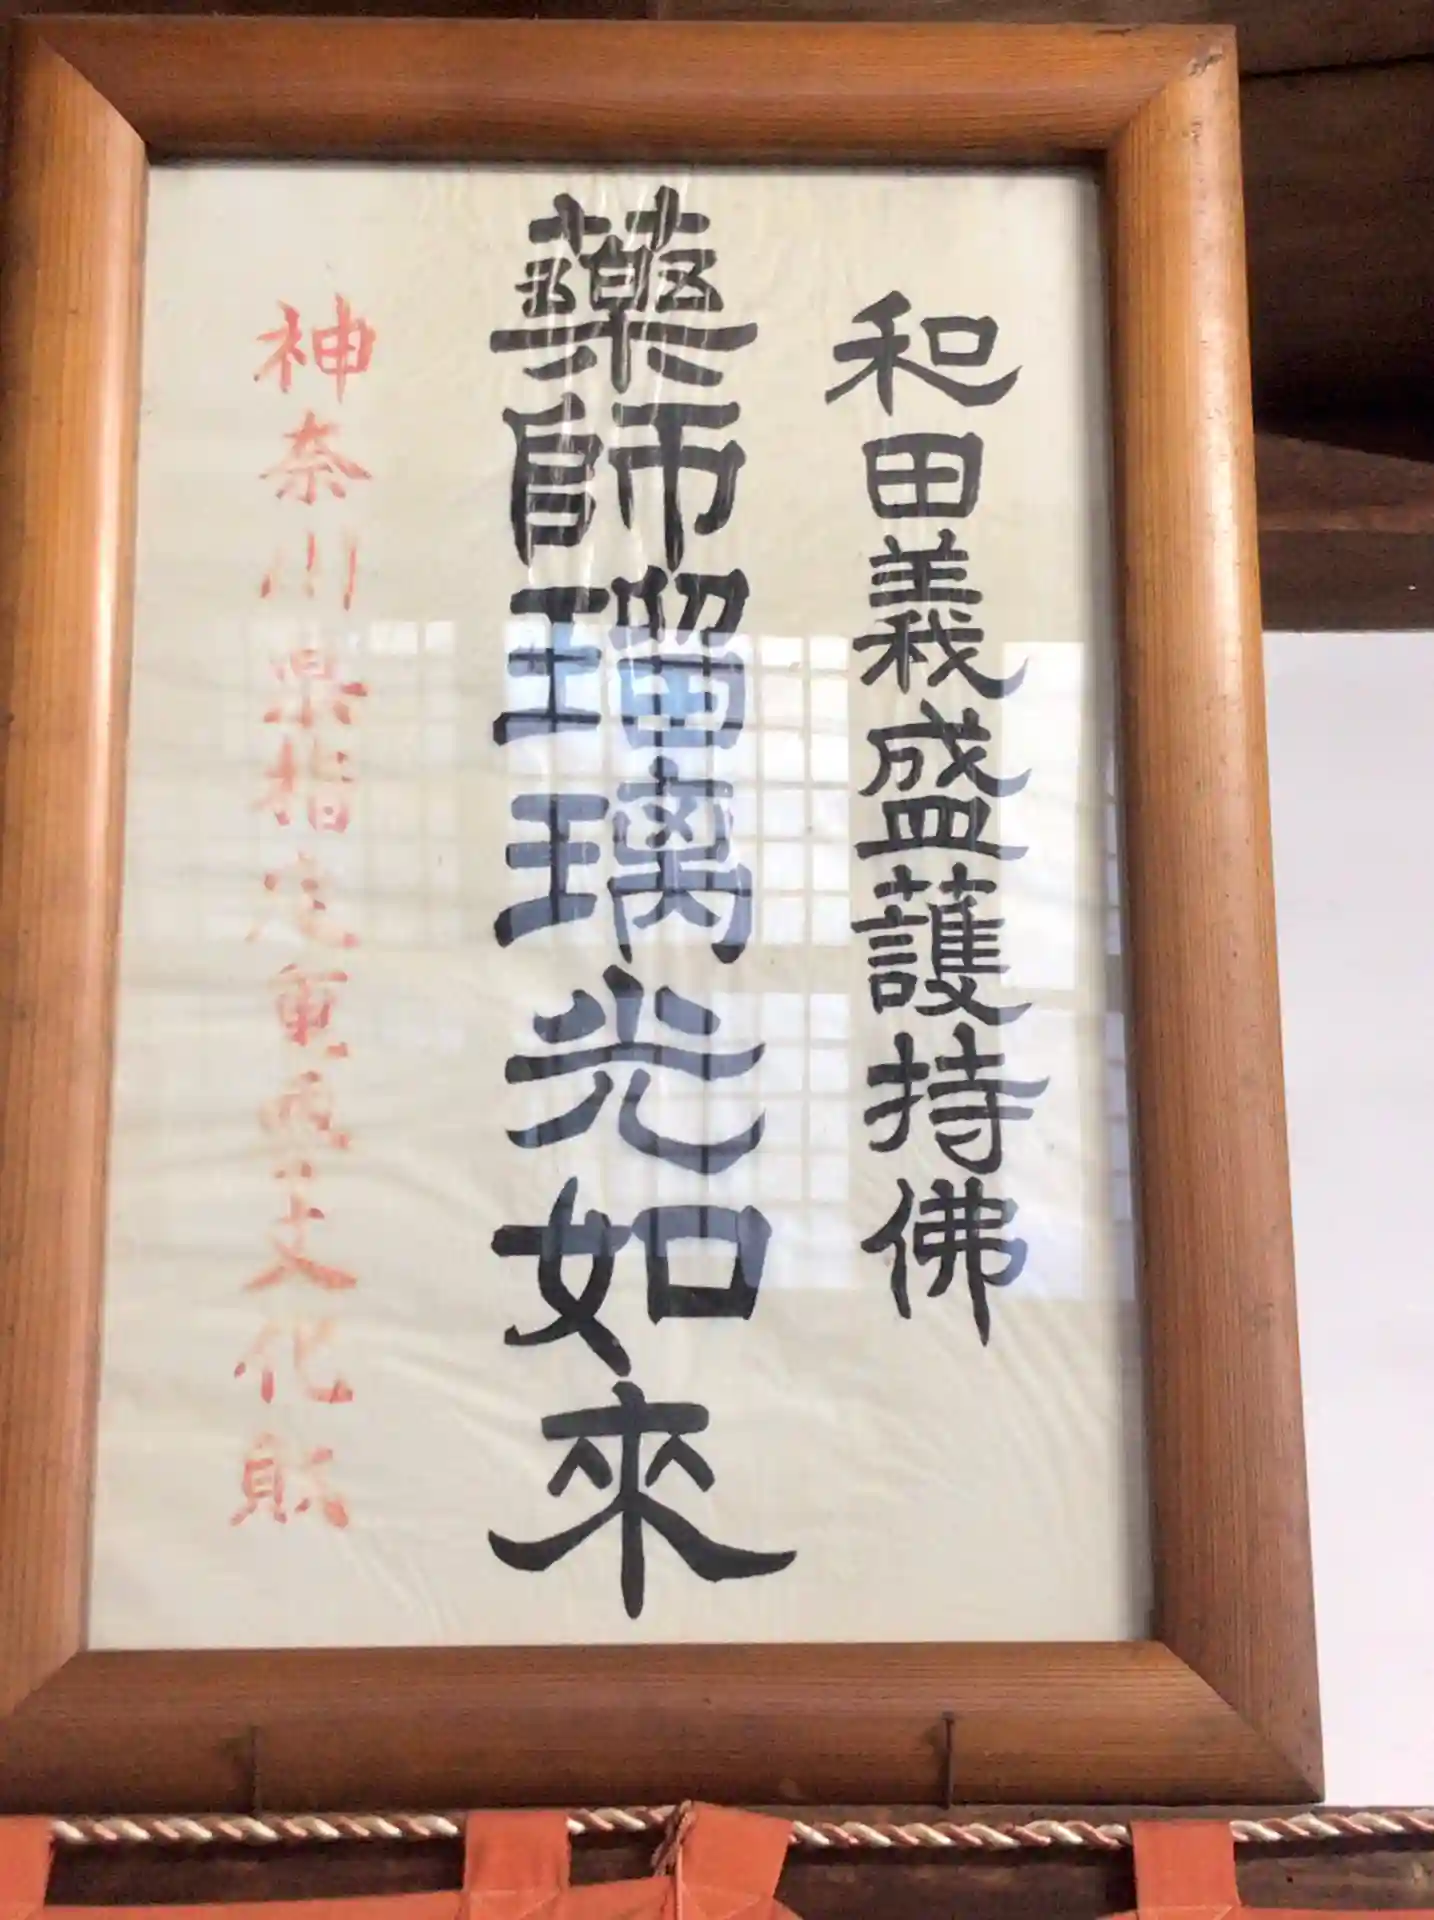 和田義盛護持佛
藥師瑠璃光如來
神奈川県指定重要文化財